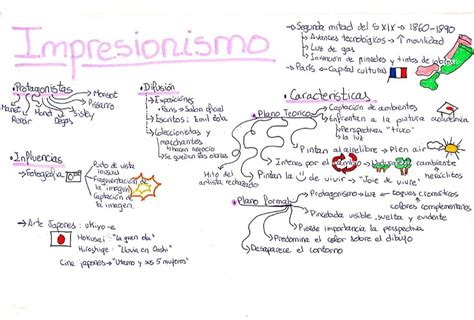 Impresionismo
→Segunda mitad del S XIX → 1860-1890
→ Avances tecnológicos → ↑ movilidad
→ Luz de gas
→ Invención de pinceles y tintes de
→ París → Capital cultural
• Protagonistas
→ Monet
Pissarro
Sisley
Degas
Manet
Renoir
• Difusión
→ Exposiciones
→ París → Salón oficial
→ Escritos: Emil Zola
→ Coleccionistas y
marchantes
→ hacían negocio
→ se quedan las obras
• Características
• Plano Teórico
→ Captación de ambientes
→ Enfrentan a la pintura académica
→ Perspectivas "truco"
→ La luz
→ Pintan al aire libre → Plen air
→ Interés por el → Natura ambiente
Mito del
artista rechazado
→ Pintan la de vivir → "Joie de vivre"
• Influencias
→ Fotografía
Punto de vista
inusual
Fragmentación
de la imagen
Captación de
la imagen
→ Arte Japonés: Ukiyo-e
Hokusai: "La gran ola"
Hiroshige: "Lluvia en
Cine japonés → "Utamaro y sus 5 mujeres"
• Plano Formal
→ Protagonismo → Luz →
colores complementarios
→ Pincelada visible, suelta y evidente
→ Pierde importancia la perspectiva
→ Predomina el color sobre el dibujo
→ Desaparece el contorno